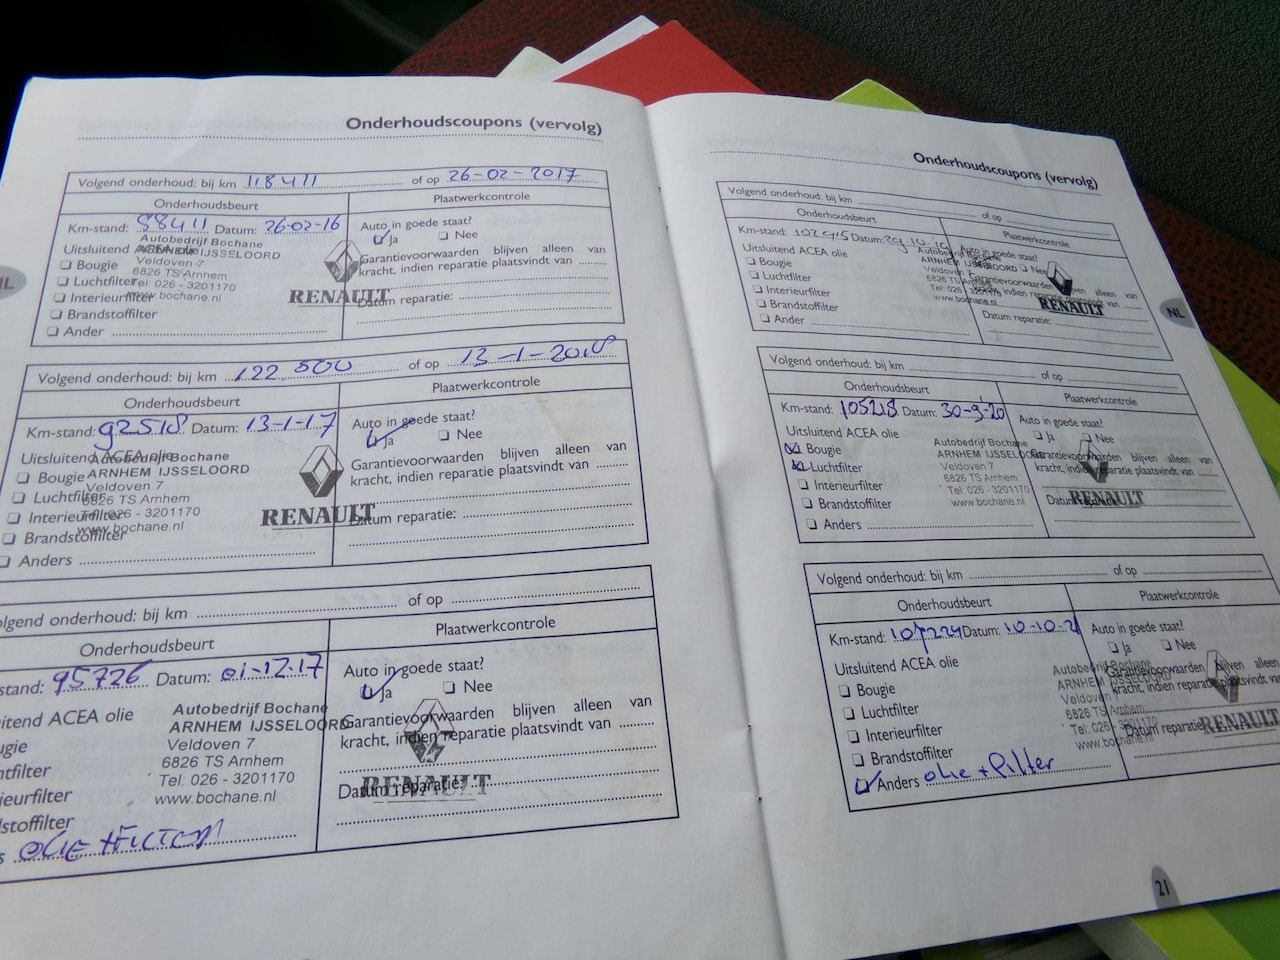 Onderhoudscoupons (vervolg)
Volgend onderhoud: bij km 118411 of op 26-02-2017
Onderhoudsbeurt
Plaatwerkcontrole
Km-stand: 88411 Datum: 26-02-16
Auto in goede staat?
Ja Nee
Uitsluitend ACEA olie
Bougie
Luchtfilter
Interieurfilter
Brandstoffilter
Ander
Autobedrijf Bochane
ARNHEM IJSSELOORD
Veldoven 7
6826 TS Arnhem
Tel: 026 - 3201170
www.bochane.nl
RENAULT
Garantievoorwaarden blijven alleen van
kracht, indien reparatie plaatsvindt van
Datum reparatie:
Volgend onderhoud: bij km 122 500 of op 13-1-2018
Onderhoudsbeurt
Plaatwerkcontrole
Km-stand: 92518 Datum: 13-1-17
Auto in goede staat?
Ja Nee
Uitsluitend ACEA olie
Bougie
Luchtfilter
Interieurfilter
Brandstoffilter
Anders
Autobedrijf Bochane
ARNHEM IJSSELOORD
Veldoven 7
6826 TS Arnhem
Tel: 026 - 3201170
www.bochane.nl
RENAULT
Garantievoorwaarden blijven alleen van
kracht, indien reparatie plaatsvindt van
Datum reparatie:
olgend onderhoud: bij km of op
Onderhoudsbeurt
Plaatwerkcontrole
stand: 95726 Datum: 01-12-17
Auto in goede staat?
Ja Nee
uitend ACEA olie
ugie
htfilter
rieurfilter
dstoffilter
s OLIE + FILTER
Autobedrijf Bochane
ARNHEM IJSSELOORD
Veldoven 7
6826 TS Arnhem
Tel: 026 - 3201170
www.bochane.nl
RENAULT
Garantievoorwaarden blijven alleen van
kracht, indien reparatie plaatsvindt van
Datum reparatie:
Onderhoudscoupons (vervolg)
Volgend onderhoud: bij km of op
Onderhoudsbeurt
Plaatwerkcontrole
Km-stand: Datum:
Uitsluitend ACEA olie
Bougie
Luchtfilter
Interieurfilter
Brandstoffilter
Ander
Autobedrijf Bochane
ARNHEM IJSSELOORD
Veldoven 7
6826 TS Arnhem
Tel: 026 - 3201170
www.bochane.nl
Nee
RENAULT
Datum reparatie:
NL
Volgend onderhoud: bij km of op
Onderhoudsbeurt
Plaatwerkcontrole
Km-stand: 105218 Datum: 30-9-20
Auto in goede staat?
Ja Nee
Uitsluitend ACEA olie
Bougie
Luchtfilter
Interieurfilter
Brandstoffilter
Anders
Autobedrijf Bochane
ARNHEM IJSSELOORD
Veldoven 7
6826 TS Arnhem
Tel: 026 - 3201170
www.bochane.nl
RENAULT
Garantievoorwaarden blijven alleen van
kracht, indien reparatie plaatsvindt van
Datum reparatie:
Volgend onderhoud: bij km of op
Onderhoudsbeurt
Plaatwerkcontrole
Km-stand: 107224 Datum: 10-10-21
Auto in goede staat?
Ja Nee
Uitsluitend ACEA olie
Bougie
Luchtfilter
Interieurfilter
Brandstoffilter
Anders olie + filter
Autobedrijf Bochane
ARNHEM IJSSELOORD
Veldoven 7
6826 TS Arnhem
Tel: 026 - 3201170
www.bochane.nl
RENAULT
Garantievoorwaarden blijven alleen van
kracht, indien reparatie plaatsvindt van
Datum reparatie:
21